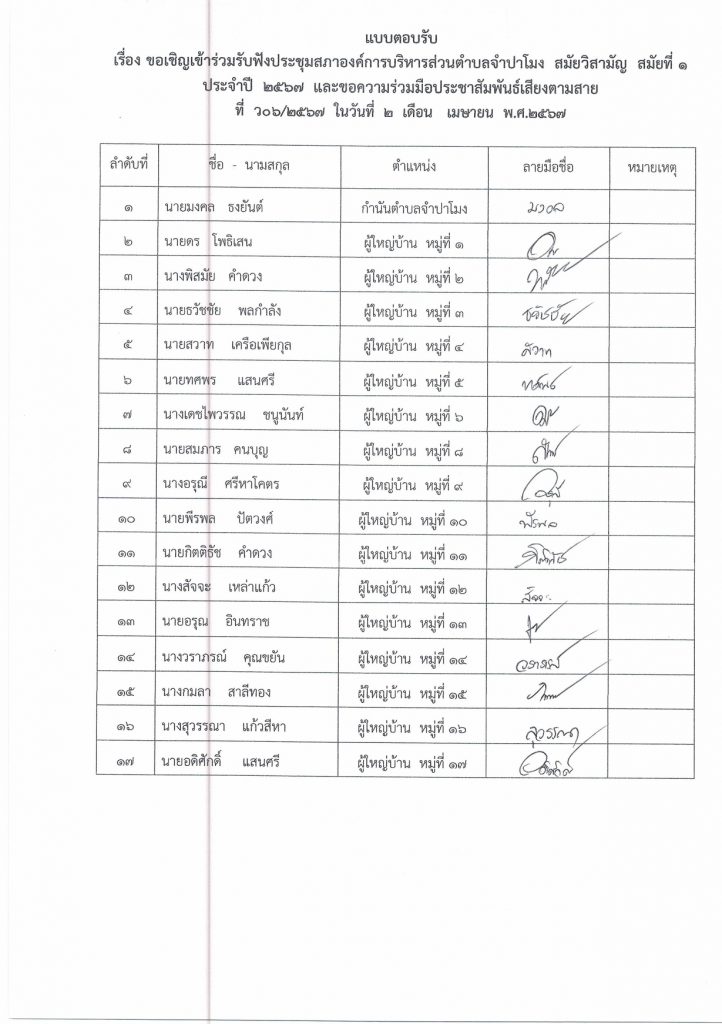 แบบตอบรับ
เรื่อง ขอเชิญเข้าร่วมรับฟังประชุมสภาองค์การบริหารส่วนตำบลจำปาโมง สมัยวิสามัญ สมัยที่ ๑
ประจำปี ๒๕๖๗ และขอความร่วมมือประชาสัมพันธ์เสียงตามสาย
ที่ ว๐๖/๒๕๖๗ ในวันที่ ๒ เดือน เมษายน พ.ศ.๒๕๖๗
ลำดับที่ ชื่อ - นามสกุล ตำแหน่ง ลายมือชื่อ หมายเหตุ
๑ นายมงคล ธงยันต์ กำนันตำบลจำปาโมง มงคล
๒ นายดร โพธิเสน ผู้ใหญ่บ้าน หมู่ที่ ๑
๓ นางพิสมัย คำดวง ผู้ใหญ่บ้าน หมู่ที่ ๒
๔ นายธวัชชัย พลกำลัง ผู้ใหญ่บ้าน หมู่ที่ ๓ ธวัชชัย
๕ นายสวาท เครือเพียกุล ผู้ใหญ่บ้าน หมู่ที่ ๔ สวาท
๖ นายทศพร แสนศรี ผู้ใหญ่บ้าน หมู่ที่ ๕
๗ นางเดชไพวรรณ ชนูนันท์ ผู้ใหญ่บ้าน หมู่ที่ ๖
๘ นายสมภาร คนบุญ ผู้ใหญ่บ้าน หมู่ที่ ๘
๙ นางอรุณี ศรีหาโคตร ผู้ใหญ่บ้าน หมู่ที่ ๙
๑๐ นายพีรพล ปัตวงศ์ ผู้ใหญ่บ้าน หมู่ที่ ๑๐ พีรพล
๑๑ นายกิตติธัช คำดวง ผู้ใหญ่บ้าน หมู่ที่ ๑๑
๑๒ นางสัจจะ เหล่าแก้ว ผู้ใหญ่บ้าน หมู่ที่ ๑๒ สัจจะ
๑๓ นายอรุณ อินทราช ผู้ใหญ่บ้าน หมู่ที่ ๑๓
๑๔ นางวราภรณ์ คุณขยัน ผู้ใหญ่บ้าน หมู่ที่ ๑๔ วราภรณ์
๑๕ นางกมลา สาลีทอง ผู้ใหญ่บ้าน หมู่ที่ ๑๕
๑๖ นางสุวรรณา แก้วสีหา ผู้ใหญ่บ้าน หมู่ที่ ๑๖ สุวรรณา
๑๗ นายอดิศักดิ์ แสนศรี ผู้ใหญ่บ้าน หมู่ที่ ๑๗